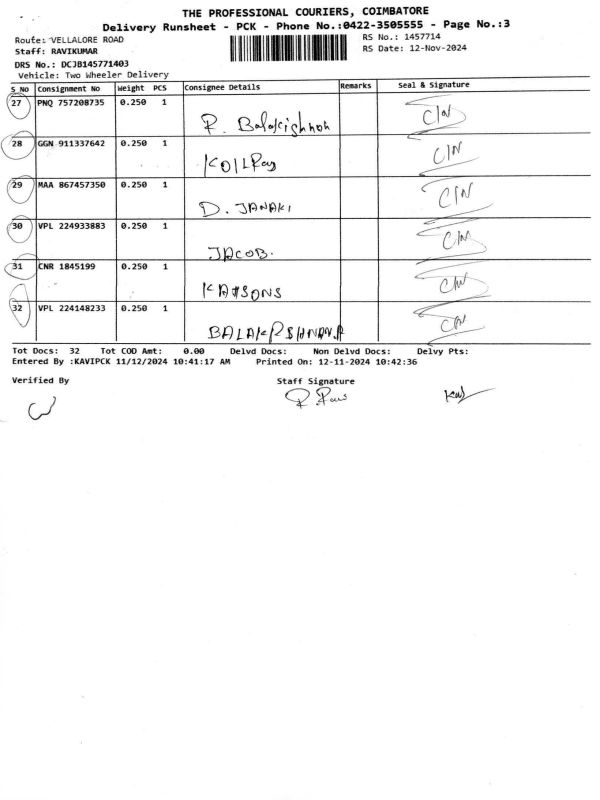 THE PROFESSIONAL COURIERS, COIMBATORE
Delivery Runsheet - PCK - Phone No.:0422-3505555 - Page No.:3
Route: VELLALORE ROAD
RS No.: 1457714
Staff: RAVIKUMAR
RS Date: 12-Nov-2024
DRS No.: DCJB145771403
Vehicle: Two Wheeler Delivery
S_No Consignment No Weight PCS Consignee Details Remarks Seal & Signature
27 PNQ 757208735 0.250 1
R. Balakishnan
28 GGN 911337642 0.250 1
KOILRaj
29 MAA 867457350 0.250 1
D. JANAKI
30 VPL 224933883 0.250 1
JACOB.
31 CNR 1845199 0.250 1
32 VPL 224148233 0.250 1
Tot Docs: 32 Tot COD Amt: 0.00 Delvd Docs: Non Delvd Docs: Delvy Pts:
Entered By :KAVIPCK 11/12/2024 10:41:17 AM Printed On: 12-11-2024 10:42:36
Verified By Staff Signature